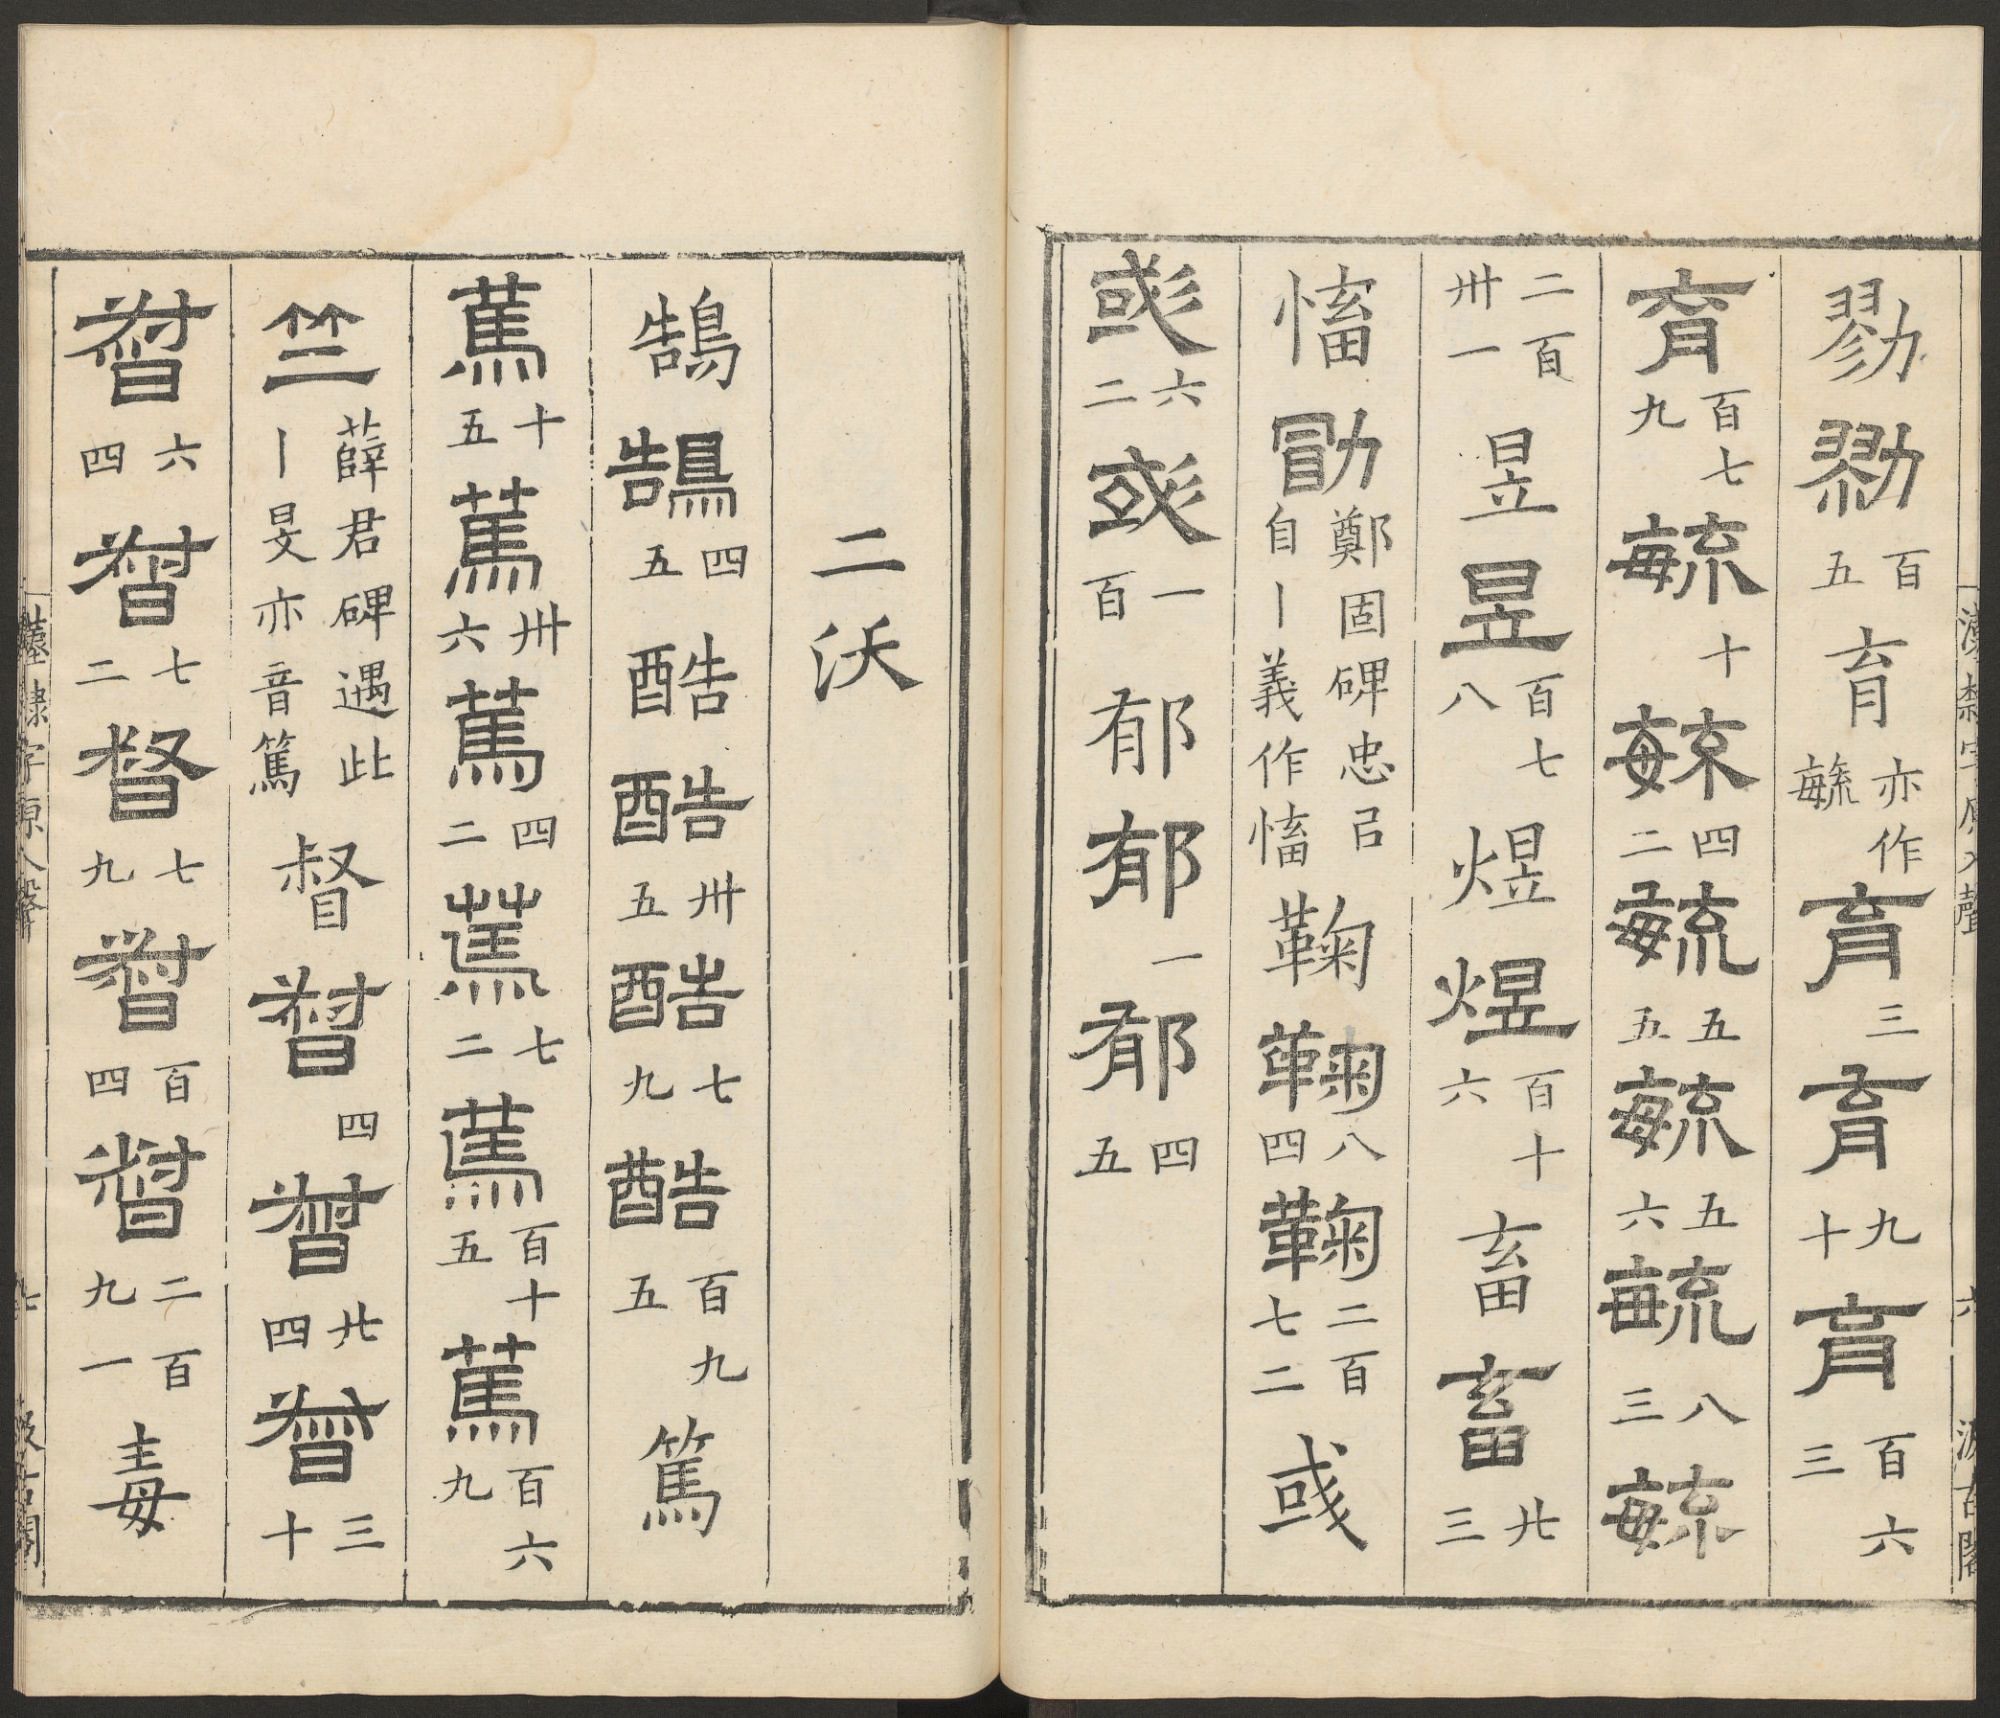 勠勠百五育亦作毓育三育九十育百六三
育百七九毓十毓四二毓五五毓五六毓八三毓
二百卅一昱昱百七八煜煜百十六畜畜廿三
慉勖鄭固碑忠㠯自丨義作慉鞠鞠八四鞠二百七二彧
彧六二彧一百郁郁一郁四五
漢隸字原入聲 六 汲古閣
二沃
鵠鵠四五酷酷卅五酷七九酷百九五篤
篤十五篤卅六篤四二篤七二篤百十五篤百六九
竺薛君碑遇此丨旻亦音篤督督四督廿四督三十
督六四督七二督七九督百四督二百九一毒
漢隸字原入聲 七 汲古閣